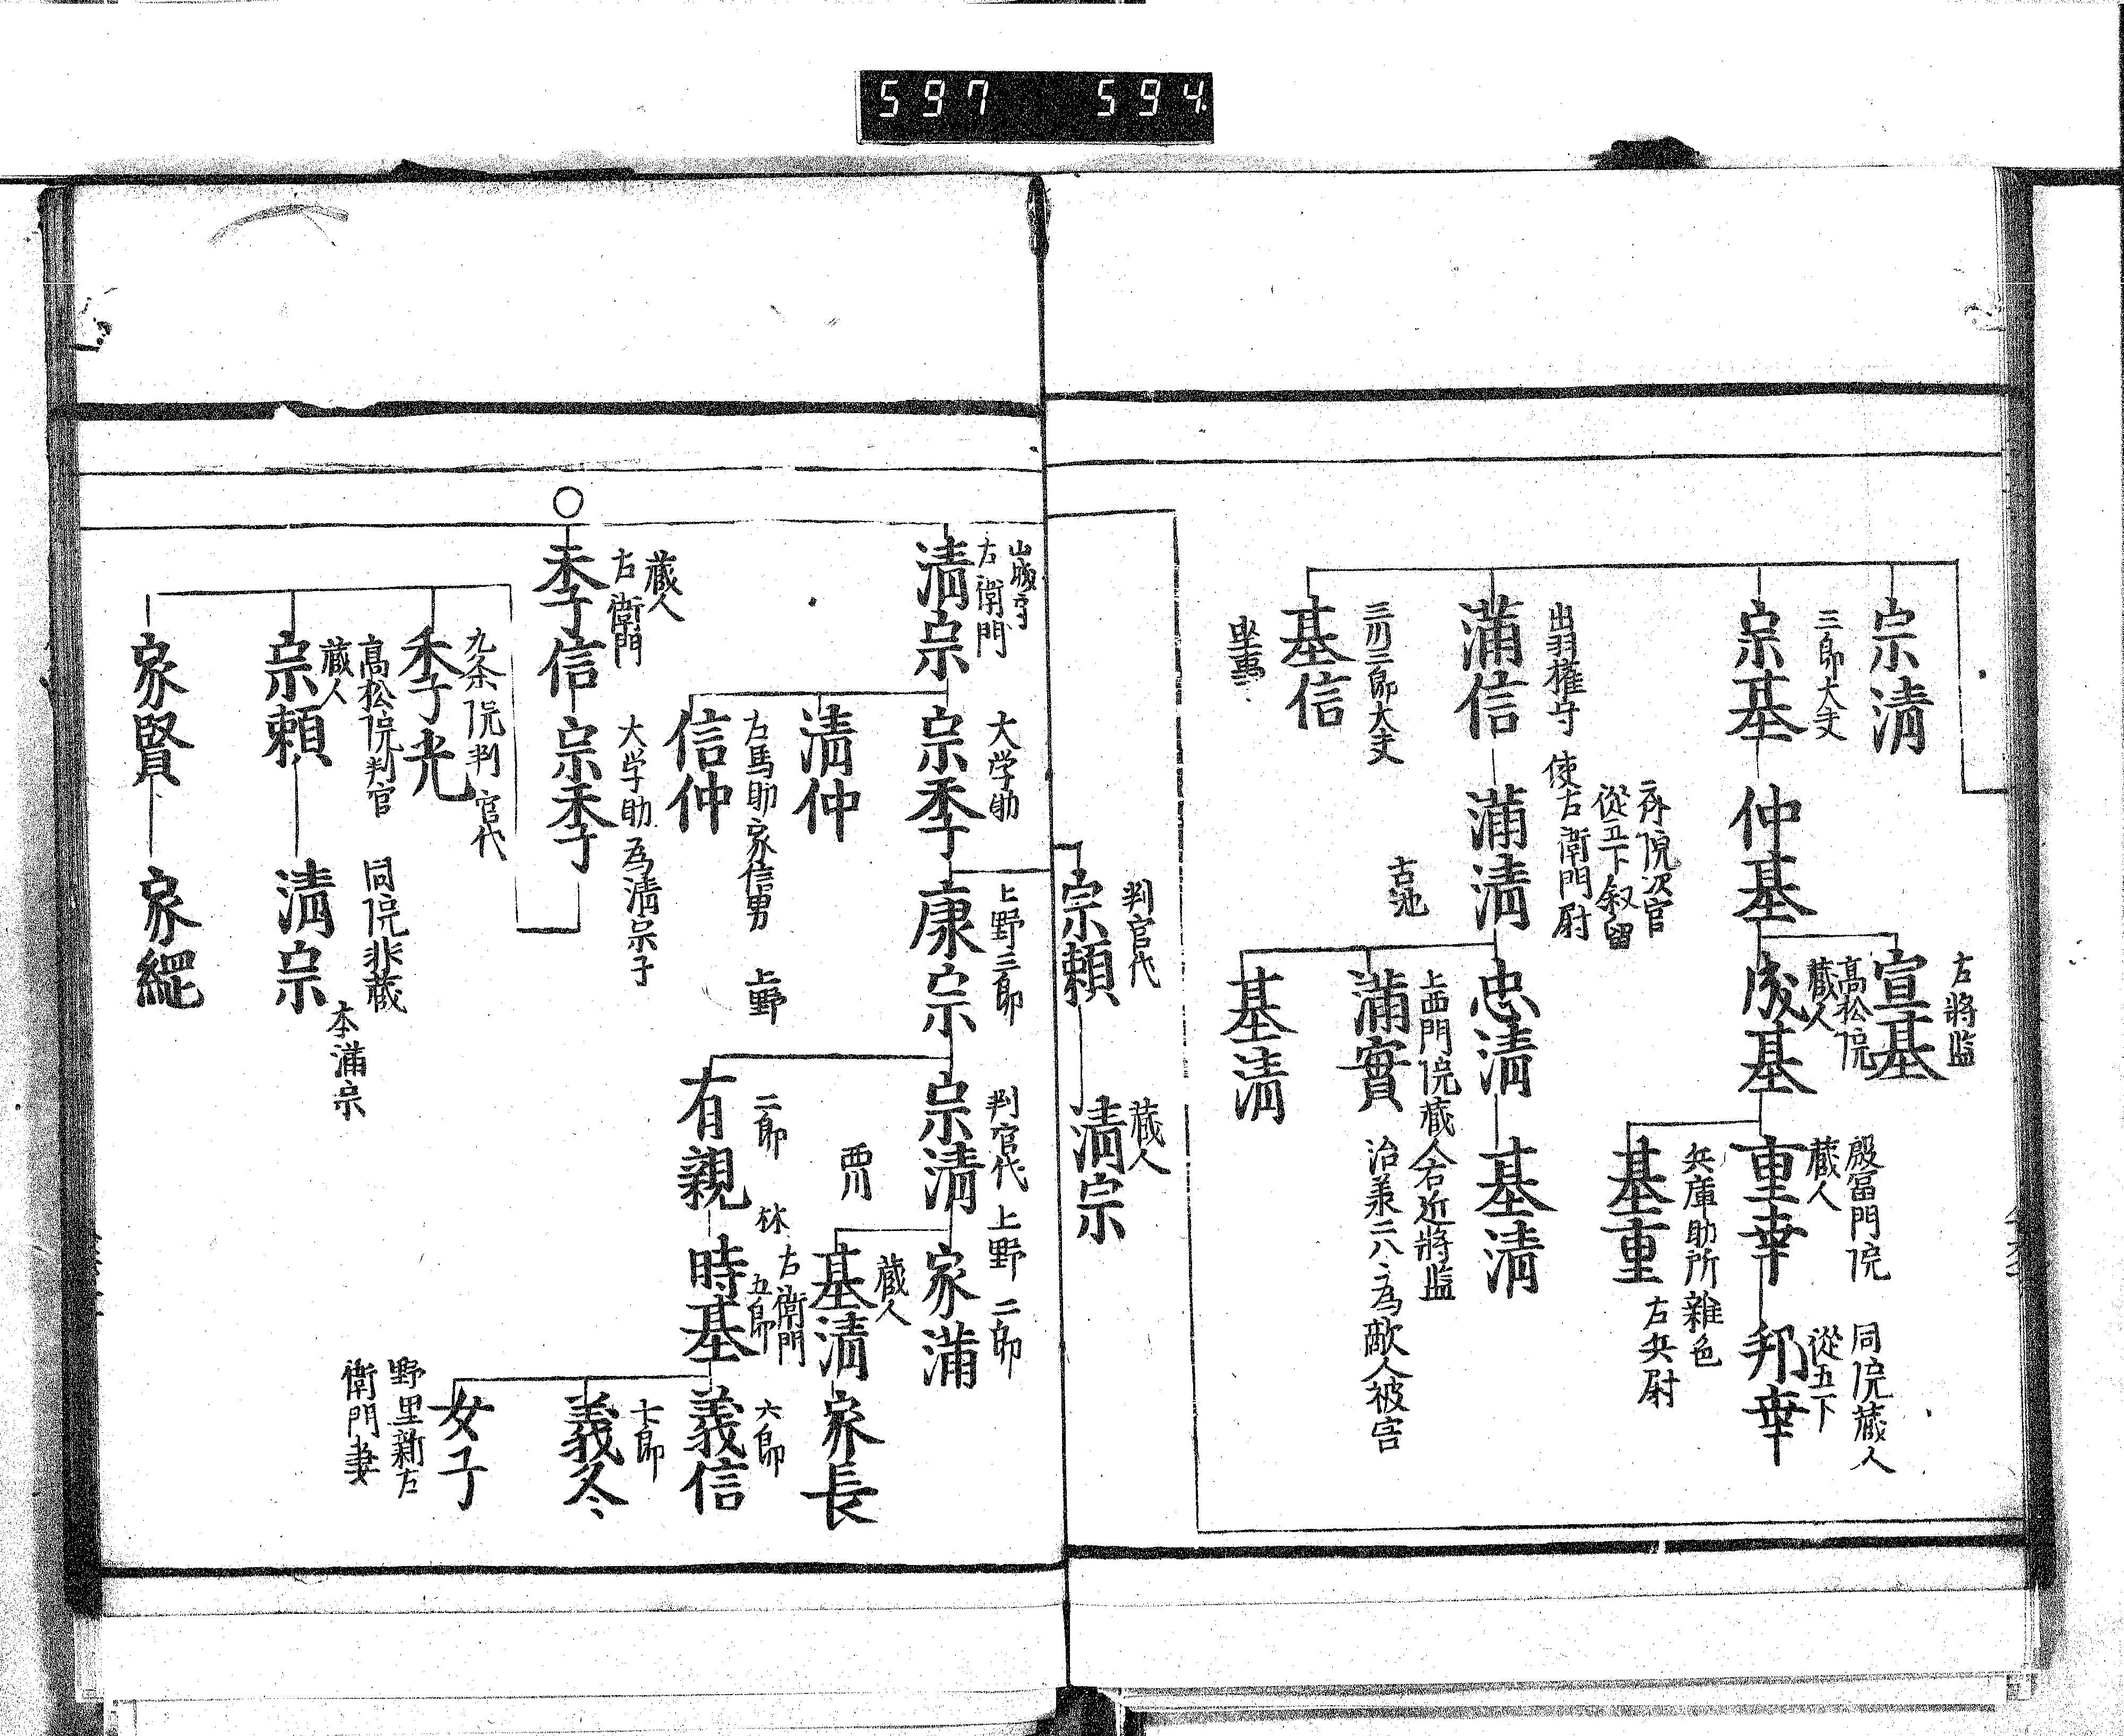 597 594
宗清
宗基
三郎大夫
仲基
斎院次官
從五下叙留
宣基
左將監
成基
高松院
蔵人
重幸
殷冨門院
蔵人
基重
兵庫助所雜色
左兵尉
邦幸
同院蔵人
從五下
満信
出羽權守
満清
使左衛門尉
古池
忠清
基清
満實
上西門院蔵人右近將監
治承二八、為敵人被害
基清
基信
三川三郎大夫
坐事
宗頼
判官代
清宗
蔵人
清宗
山城守
左衛門
宗季
大学助
康宗
上野三郎
宗清
判官代
家満
上野二郎
基清
蔵人
西川
家長
有親
二郎
林
時基
右衛門
五郎
義信
六郎
義冬
七郎
女子
野里新左
衛門妻
清仲
信仲
右馬助家信男
上野
季信
蔵人
右衛門
宗季
大学助為清宗子
季光
九条院判官代
宗頼
高松院判官
蔵人
清宗
同院非蔵
本満宗
家賢
家綱